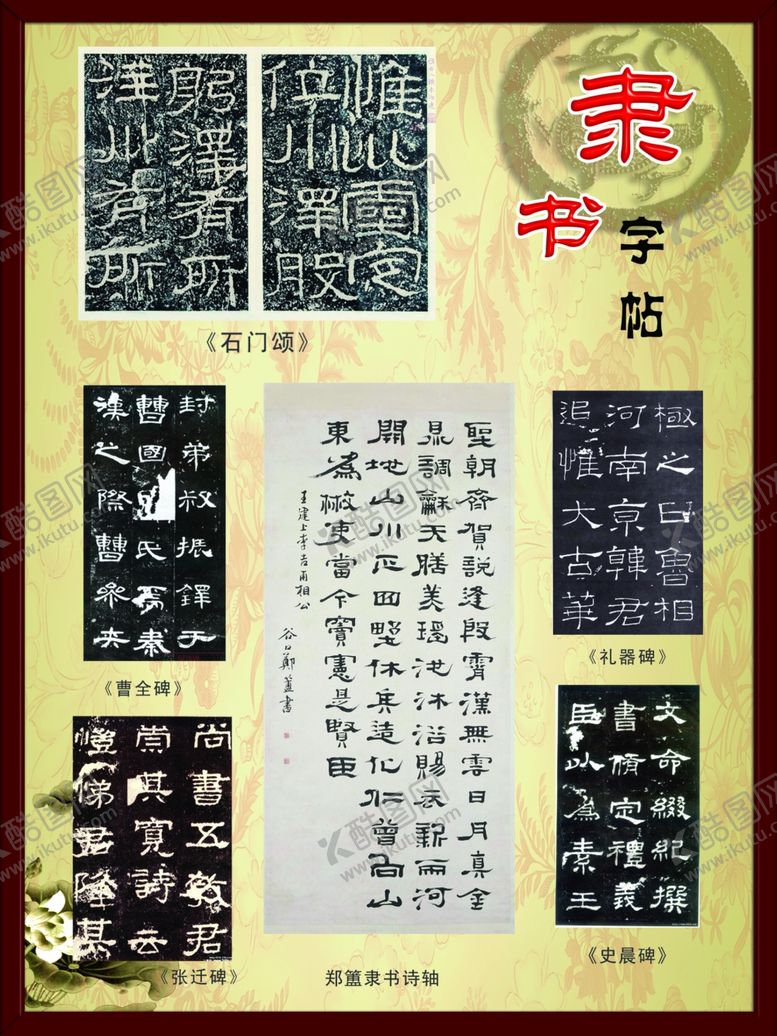 隶书
字帖
惟巛靈定
位川澤股
躬澤有所
注川有所
《石门颂》
封弟叔振鐸于
曹國因氏焉秦
漢之際曹參夾
《曹全碑》
聖朝齊賀說逢殷霄漢無雲日月真金
鼎調龢天膳美瑶池沐浴賜衣新兩河
開地山川正四野休兵造化仁曾向山
東為散吏當今竇憲是賢臣
王建上李吉甫相公
谷口鄭簠書
極之日魯相
河南京韓君
追惟大古華
《礼器碑》
尚書五教君
崇其寬詩云
愷悌君隆其
《张迁碑》
郑簠隶书诗轴
文命綴紀撰
書脩定禮義
臣以為素王
《史晨碑》
酷图网
www.ikutu.com